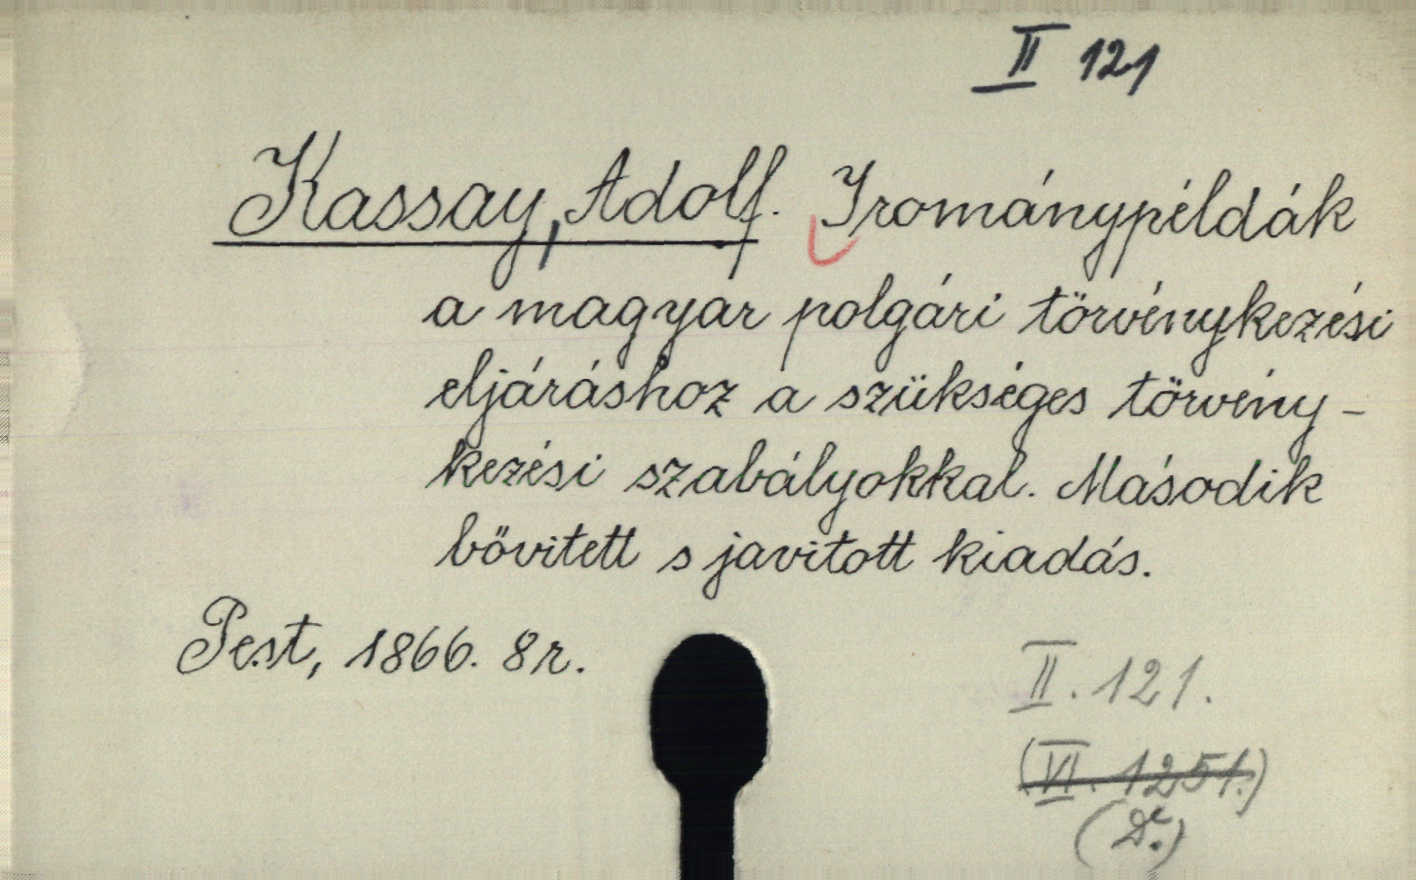 II 121
Kassay, Adolf. Irománypéldák
a magyar polgári törvénykezési
eljáráshoz a szükséges törvény-
kezési szabályokkal. Második
bővitett s javitott kiadás.
Pest, 1866. 8r.
II. 121.
(VI. 1251.)